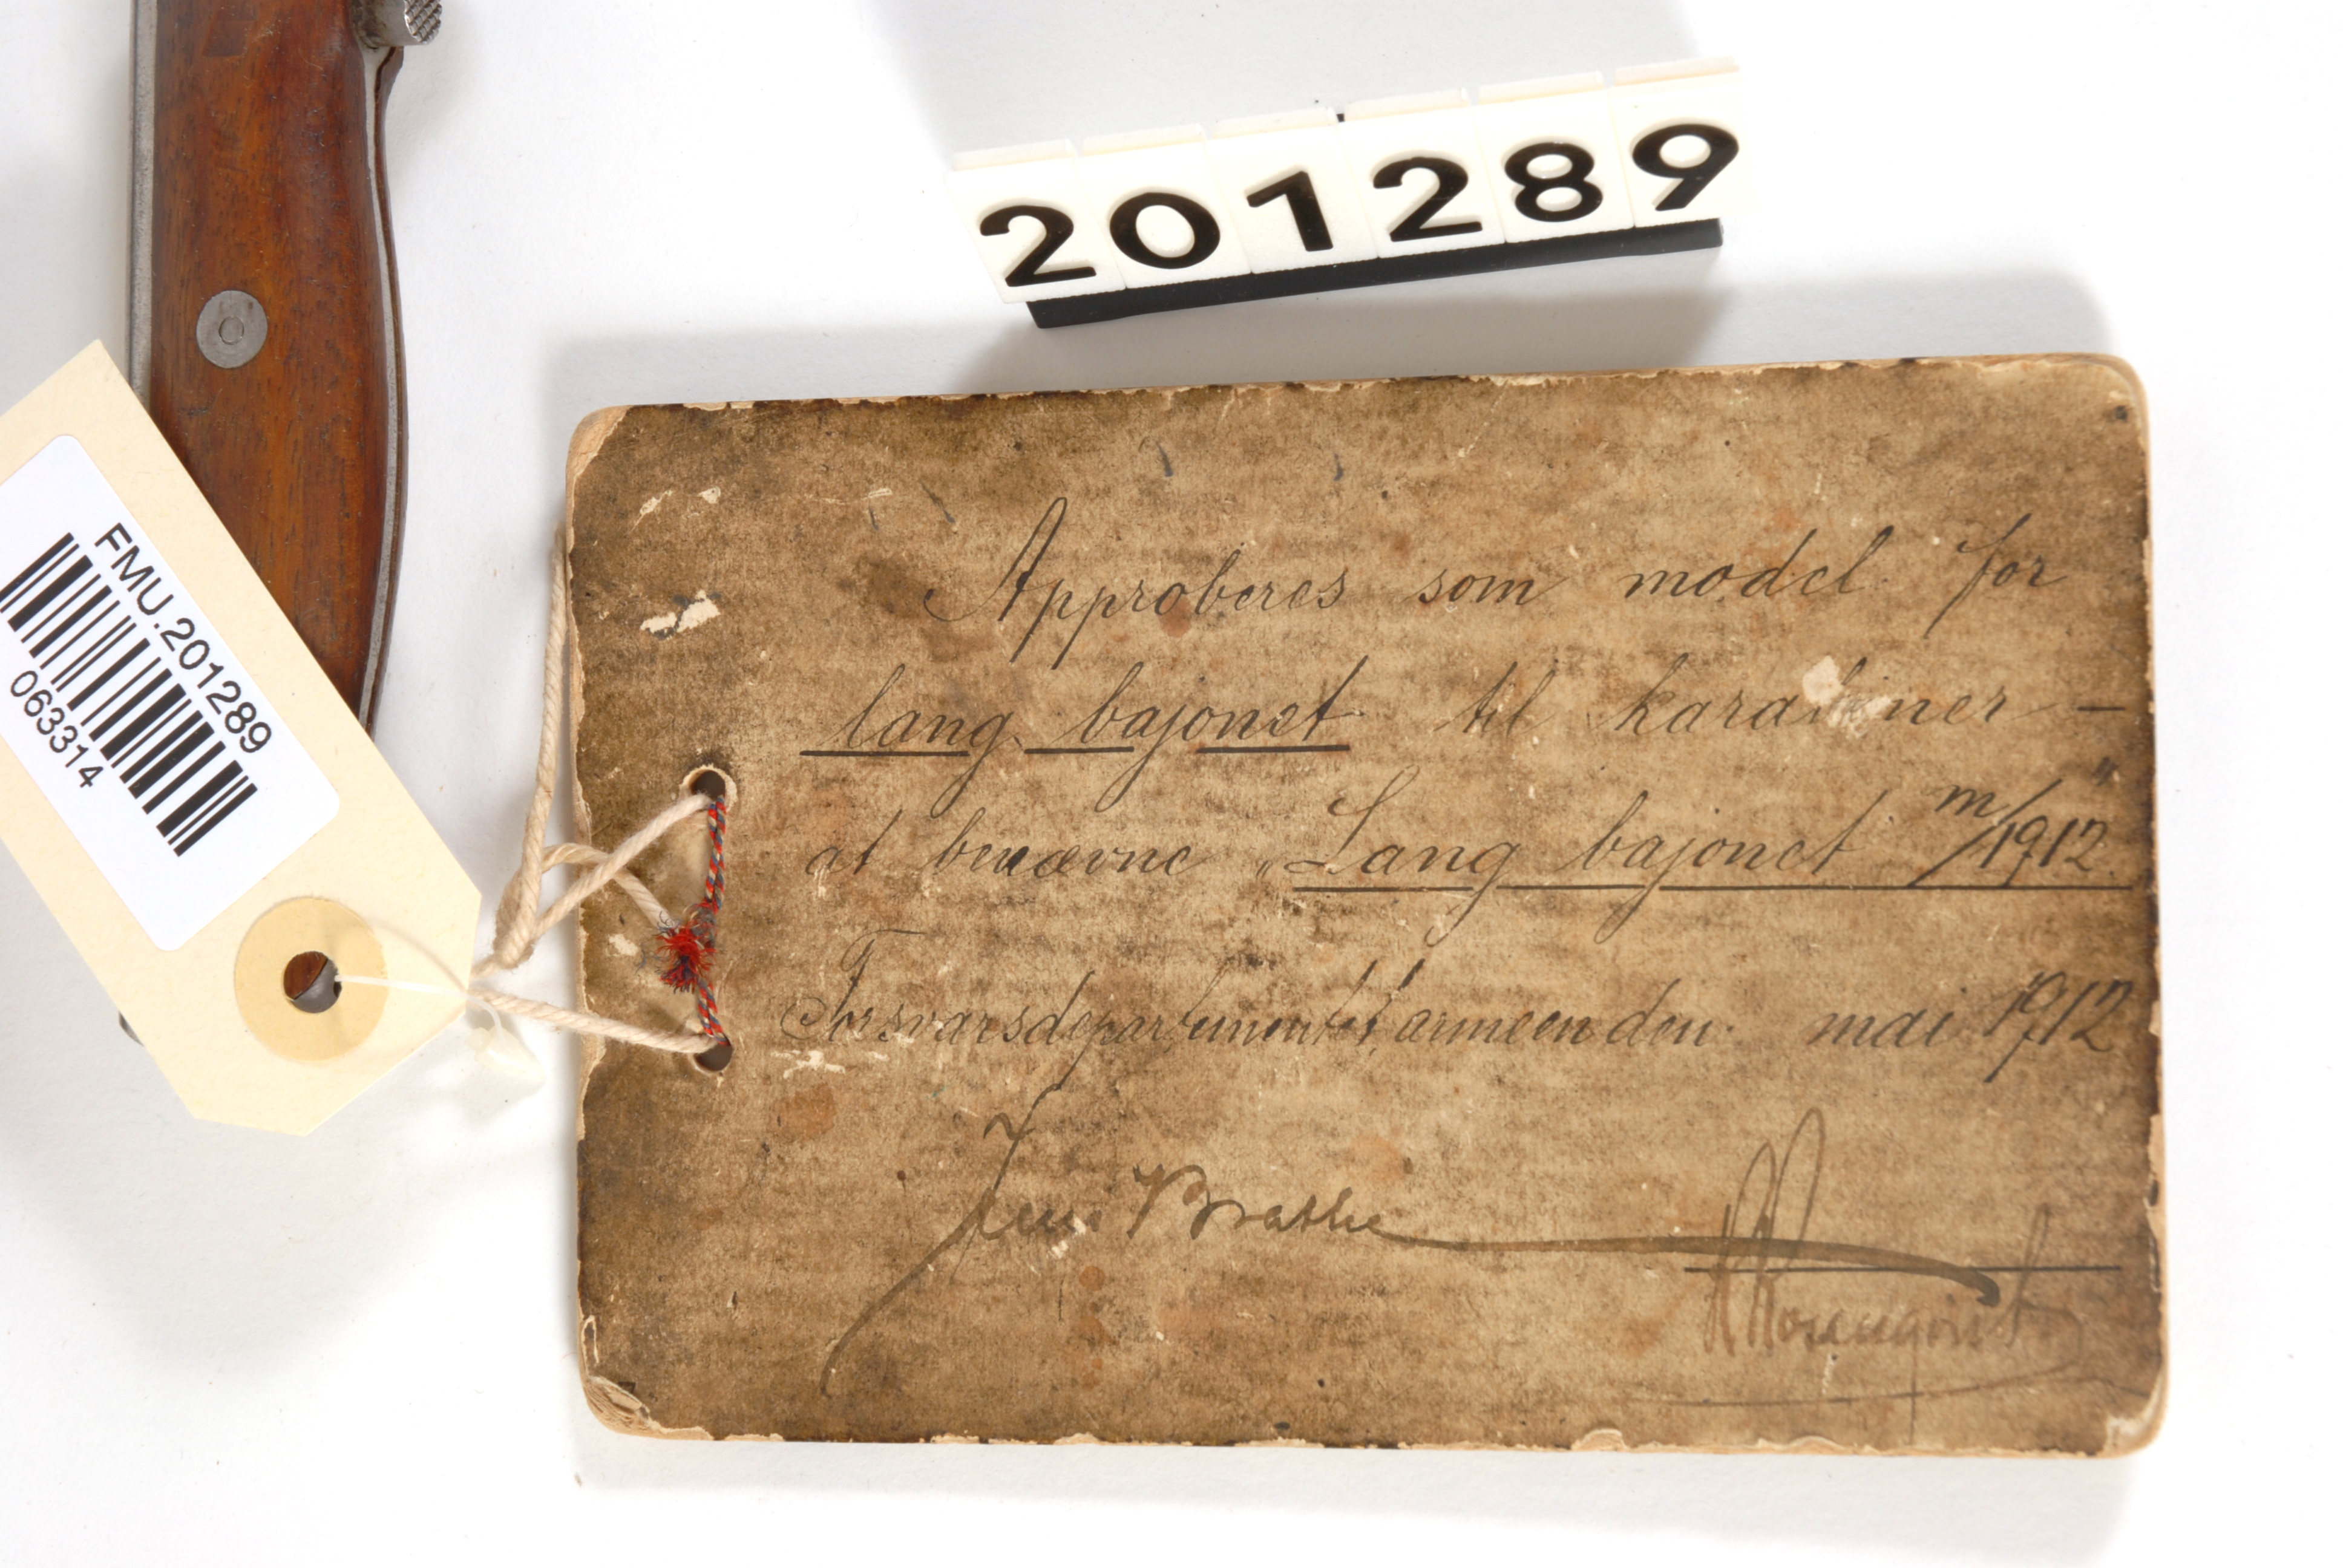 201289
FMU.201289
063314
Approberes som model for
lang bajonet til karabiner –
at benævne „Lang bajonet m/1912."
Forsvarsdepartementet, armeen den mai 1912
Jens Brathe